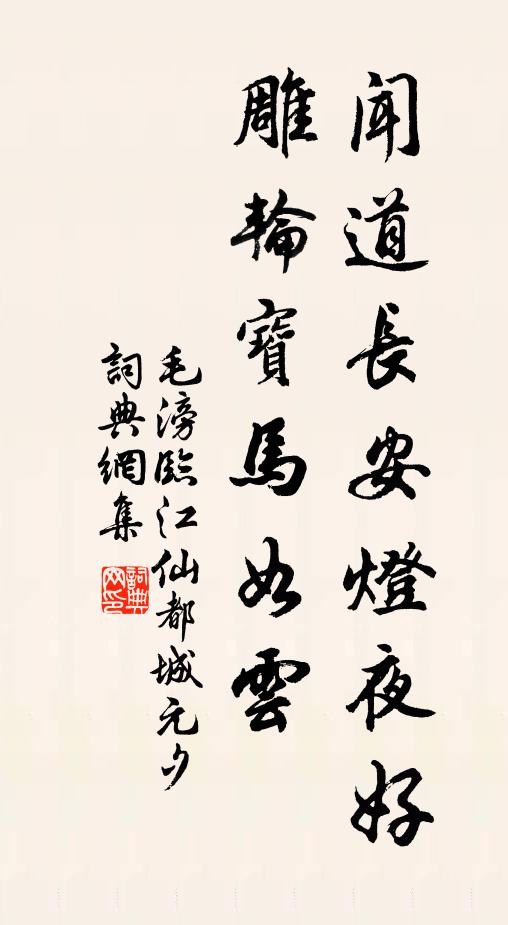 聞道長安燈夜好
雕輪寶馬如雲
毛滂臨江仙都城元夕
詞典網集
詞典
网印